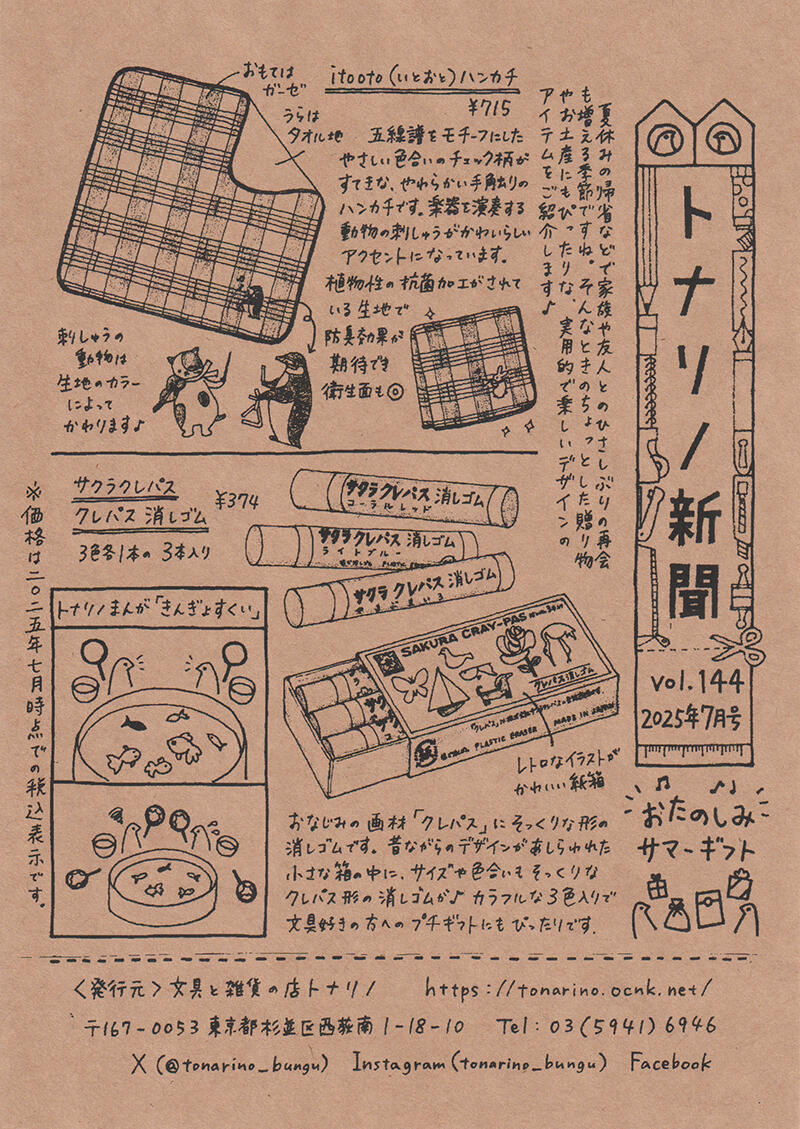 トナリノ新聞
vol.144
2025年7月号
おたのしみ
サマーギフト
夏休みの帰省などで家族や友人とのひさしぶりの再会
も増える季節ですね。そんなときのちょっとした贈り物
やお土産にもぴったりな、実用的で楽しいデザインの
アイテムをご紹介します♪
itooto(いとおと)ハンカチ
¥715
おもては
ガーゼ
うらは
タオル地
五線譜をモチーフにした
やさしい色合いのチェック柄が
すてきな、やわらかい手角虫りの
ハンカチです。楽器を演奏する
動物の刺しゅうがかわいらしい
アクセントになっています。
植物性の抗菌加工がされて
いる生地で
防臭効果が
期待でき
衛生面も◎
刺しゅうの
動物は
生地のカラー
によって
かわります♪
サクラクレパス
クレパス消しゴム
¥374
3色各1本の3本入り
サクラクレパス消しゴム
コーラルレッド
サクラクレパス消しゴム
ライトブルー
サクラクレパス消しゴム
やまぶきいろ
SAKURA CRAY-PAS
クレパス消しゴム
SAKURA PLASTIC ERASER MADE IN JAPAN
レトロなイラストが
かわいい紙箱
おなじみの画材「クレパス」にそっくりな形の
消しゴムです。昔ながらのデザインがあしらわれた
小さな箱の中に、サイズや色合いもそっくりな
クレパス形の消しゴムが♪カラフルな3色入りで
文具好きの方へのプチギフトにもぴったりです.
トナリノまんが「きんぎょすくい」
※価格は二〇二五年七月時点での税込表示です。
<発行元>文具と雑貨の店トナリノ https://tonarino.ocnk.net/
〒167-0053東京都杉並区西荻南1-18-10 Tel:03(5941)6946
X(@tonarino_bungu) Instagram(tonarino_bungu) Facebook